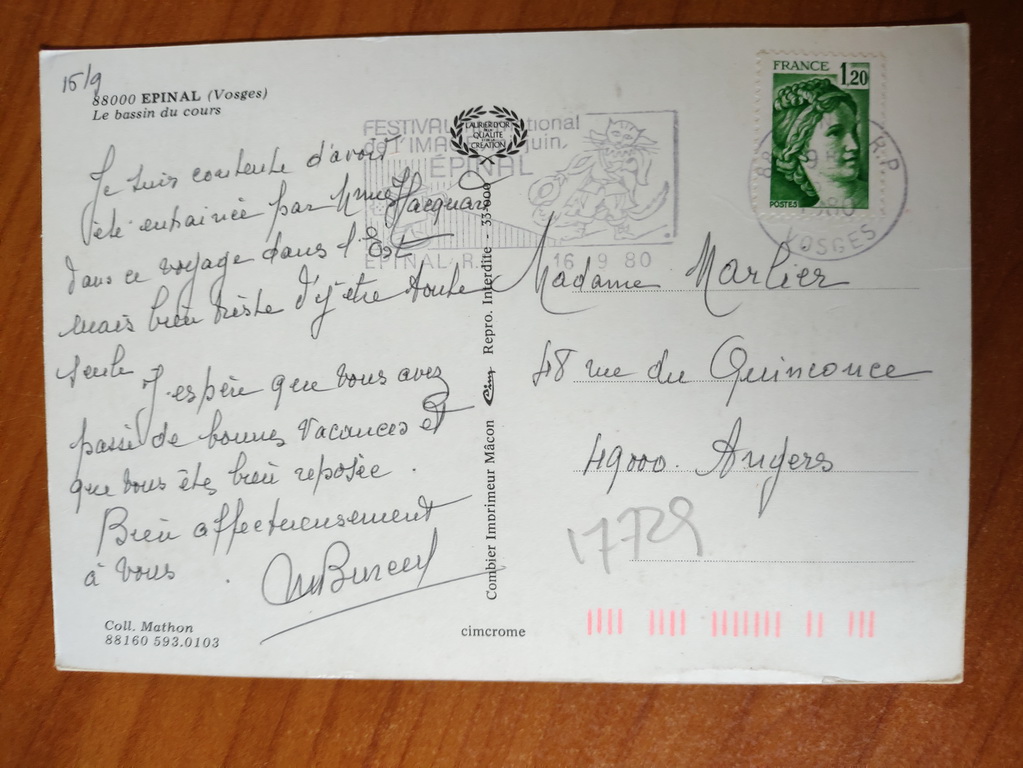 15/9
88000 EPINAL (Vosges)
Le bassin du cours
Je suis contente d'avoir
été entrainée par Mme Jacquard
dans ce voyage dans l'Est
mais bien triste d'y être toute
seule
J'espère que vous avez
passé de bonnes vacances et
que vous êtes bien reposée.
Bien affectueusement
à vous.
Coll. Mathon
88160 593.0103
LAURIER D'OR
DE LA
QUALITÉ
CRÉATION
Combier Imprimeur Mâcon Cim Repro. Interdite - 33-000
cimcrome
FESTIVAL national
de l'IMA juin
ÉPINAL
EPINAL R. 16 9 80
FRANCE 1,20
POSTES
R.P
1980
VOSGES
Madame Marlier
48 rue du Quinconce
49000. Angers
17729